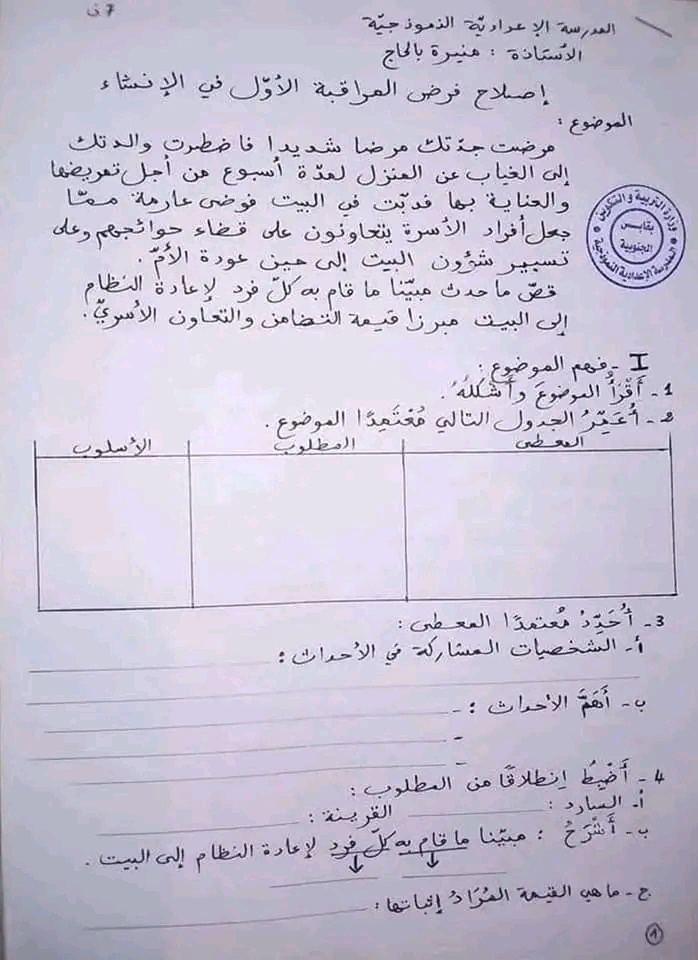 7 ن
المدرسة الإعداديّة النموذجيّة
الأستاذة : منيرة بالحاج
إصلاح فرض المراقبة الأوّل في الإنشاء
الموضوع :
مرضت جدّتك مرضا شديدا فاضطرت والدتك
إلى الغياب عن المنزل لمدة أسبوع من أجل تمريضها
والعناية بها فدبّت في البيت فوضى عارمة ممّا
جعل أفراد الأسرة يتعاونون على قضاء حوائجهم وعلى
تسيير شؤون البيت إلى حين عودة الأمّ.
قصّ ما حدث مبيّنا ما قام به كلّ فرد لإعادة النظام
إلى البيت مبرزا قيمة التضامن والتعاون الأسريّ.
وزارة التربية والتكوين
بقابس
الجنوبية
المدرسة الإعدادية النموذجية
I - فهم الموضوع :
1- أَقْرَأُ الموضوعَ وأَشْكُلُهُ.
2- أُعَمِّرُ الجدول التالي مُعْتَمِدًا الموضوع.
المعطى المطلوب الأسلوب
3- أُحَدِّدُ مُعتمدًا المعطى :
أ- الشخصيات المشاركة في الأحداث :
ب- أَهَمَّ الأحداث : -
-
-
4- أَضْبِطُ اِنطلاقًا من المطلوب :
أ- السارد : القرينة :
ب- أَشْرَحُ : مبيّنا ما قام به كلّ فرد لإعادة النظام إلى البيت .
ج- ماهي القيمة المُرَادُ إثباتها :
1